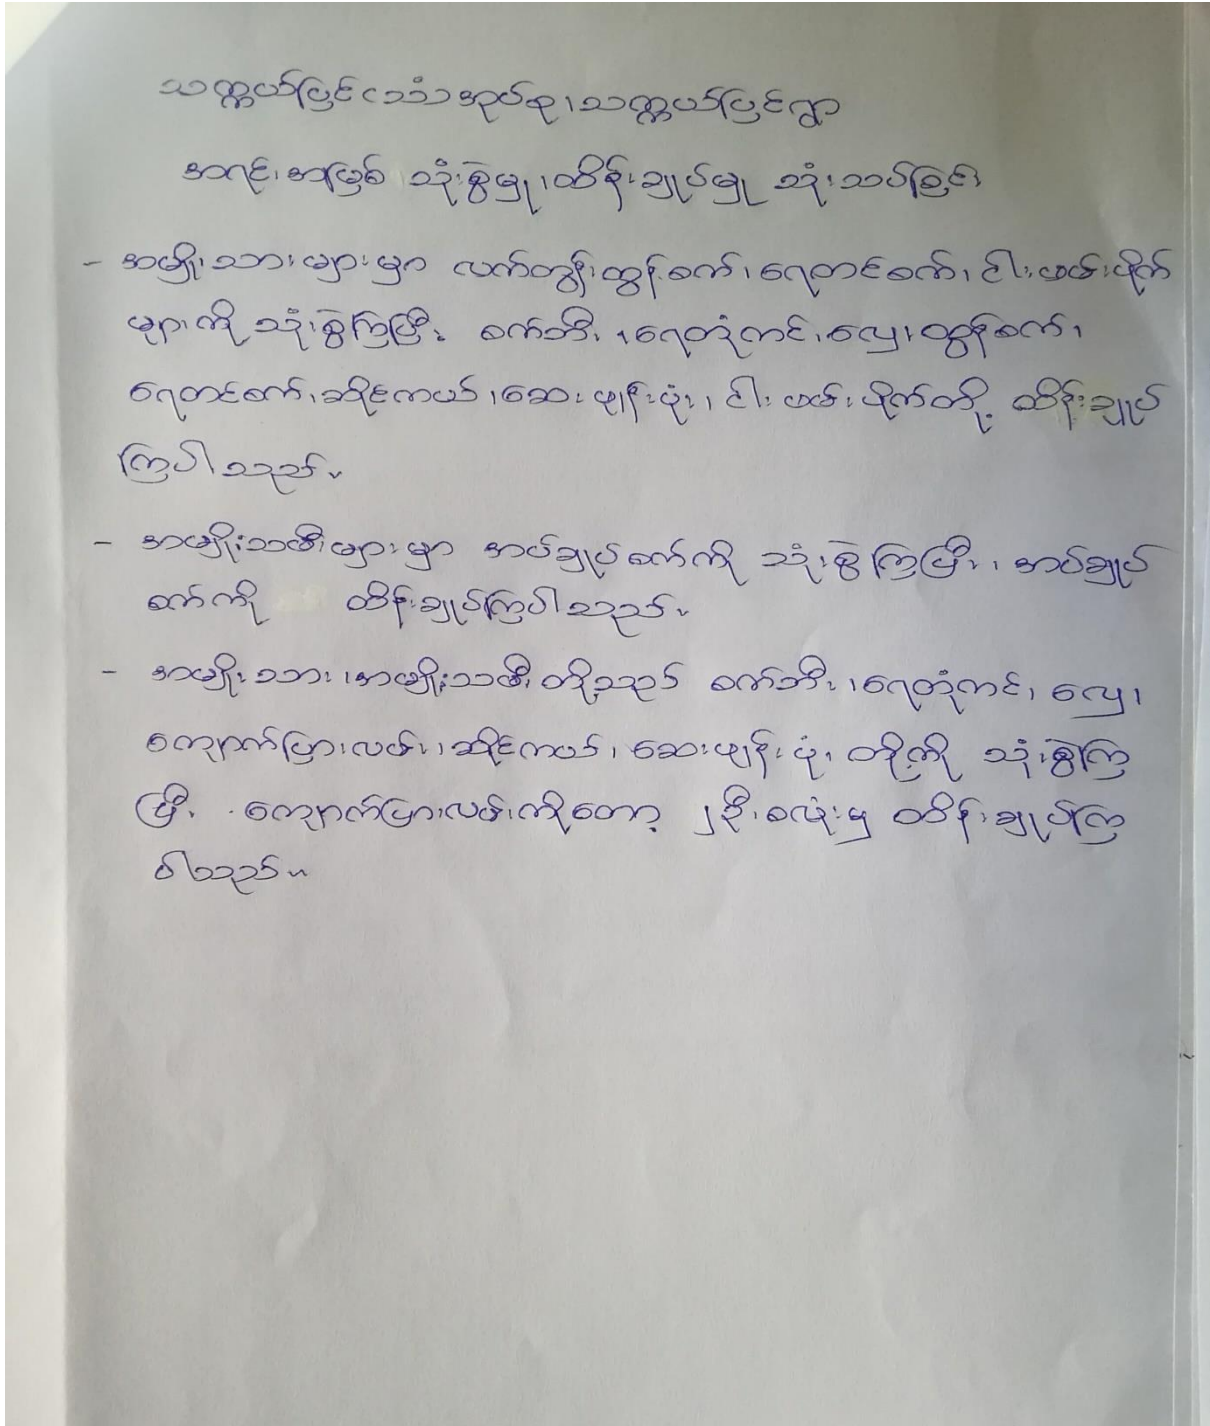 သက္ကယ်ပြင် (သံ) အုပ်စု၊ သက္ကယ်ပြင်ရွာ
အရင်းအမြစ် သုံးစွဲမှု၊ ထိန်းချုပ်မှု သုံးသပ်ခြင်း
- အမျိုးသားများမှာ လက်တွန်းထွန်စက်၊ ရေတင်စက်၊ ငါးဖမ်းပိုက်
များကို သုံးစွဲကြပြီး စက်ဘီး၊ ရေတုံကင်၊ လှေ၊ ထွန်စက်၊
ရေတင်စက်၊ ဆိုင်ကယ်၊ ဆေးဖျန်းပုံး၊ ငါးဖမ်းပိုက်တို့ ထိန်းချုပ်
ကြပါသည်။
- အမျိုးသမီးများမှာ အပ်ချုပ်စက်ကို သုံးစွဲကြပြီး၊ အပ်ချုပ်
စက်ကို ထိန်းချုပ်ကြပါသည်။
- အမျိုးသား၊ အမျိုးသမီးတို့သည် စက်ဘီး၊ ရေတုံကင်၊ လှေ၊
ကျောက်ပြားလမ်း၊ ဆိုင်ကယ်၊ ဆေးဖျန်းပုံး တို့ကို သုံးစွဲကြ
ပြီး ကျောက်ပြားလမ်းကိုတော့ ၂ဦးစလုံးမှ ထိန်းချုပ်ကြ
ပါသည်။